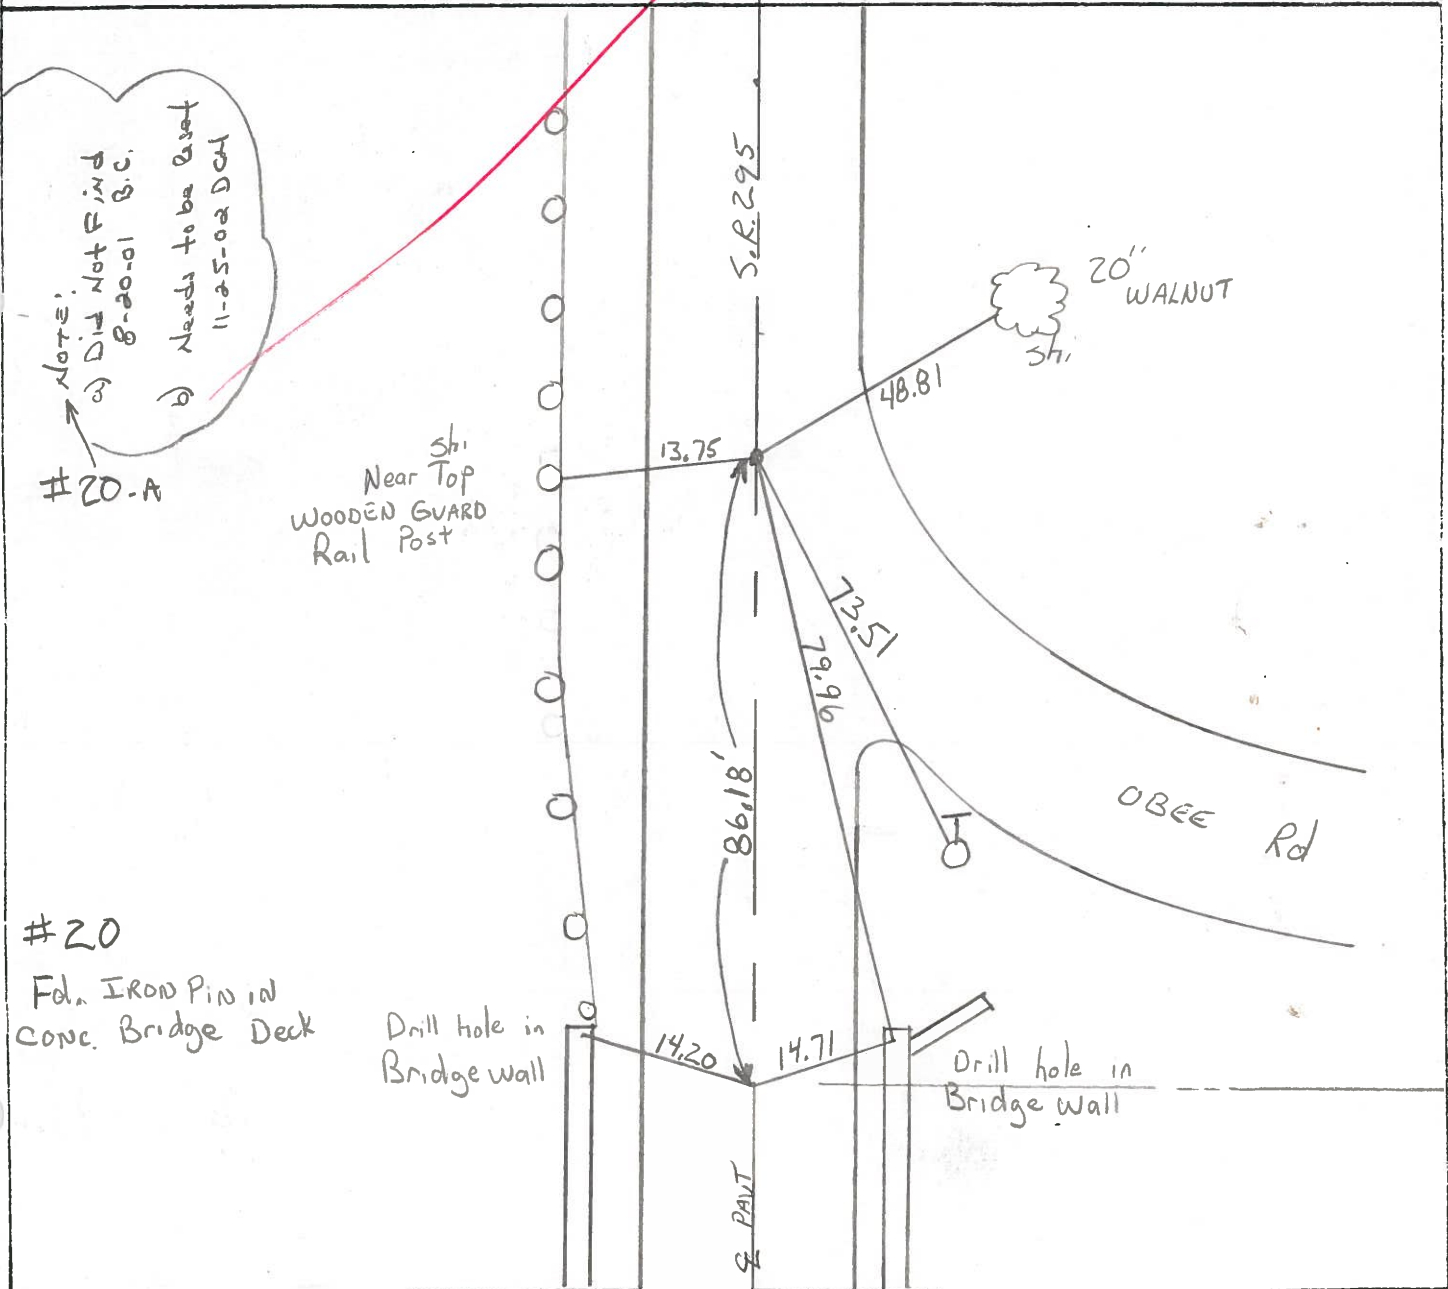 S.R. 295
NOTE:
a) Did Not Find
8-20-01 B.C.
b) Needs to be Reset
11-25-02 DCH
#20-A
20" WALNUT
Shi
48.81
13.75
Shi
Near Top
WOODEN GUARD
Rail Post
73.51
79.96
86.18'
OBEE Rd
#20
Fd. IRON PIN IN
CONC. Bridge Deck
Drill hole in
Bridge wall
14.20
14.71
Drill hole in
Bridge wall
℄ PAVT